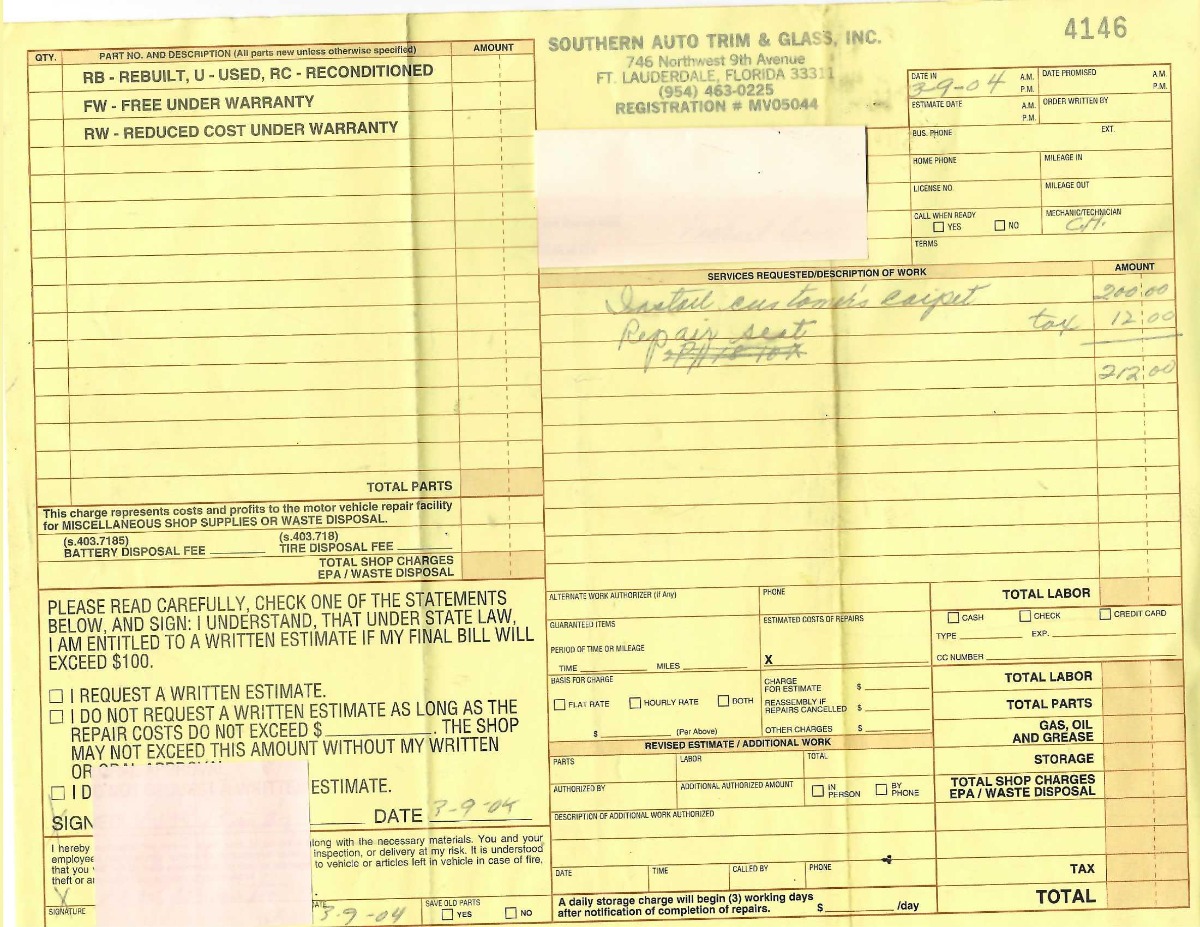 4146
SOUTHERN AUTO TRIM & GLASS, INC.
746 Northwest 9th Avenue
FT. LAUDERDALE, FLORIDA 33311
(954) 463-0225
REGISTRATION # MV05044
QTY. PART NO. AND DESCRIPTION (All parts new unless otherwise specified) AMOUNT
RB - REBUILT, U - USED, RC - RECONDITIONED
FW - FREE UNDER WARRANTY
RW - REDUCED COST UNDER WARRANTY
TOTAL PARTS
This charge represents costs and profits to the motor vehicle repair facility
for MISCELLANEOUS SHOP SUPPLIES OR WASTE DISPOSAL.
(s.403.7185) (s.403.718)
BATTERY DISPOSAL FEE TIRE DISPOSAL FEE
TOTAL SHOP CHARGES
EPA / WASTE DISPOSAL
PLEASE READ CAREFULLY, CHECK ONE OF THE STATEMENTS
BELOW, AND SIGN: I UNDERSTAND, THAT UNDER STATE LAW,
I AM ENTITLED TO A WRITTEN ESTIMATE IF MY FINAL BILL WILL
EXCEED $100.
I REQUEST A WRITTEN ESTIMATE.
I DO NOT REQUEST A WRITTEN ESTIMATE AS LONG AS THE
REPAIR COSTS DO NOT EXCEED $ . THE SHOP
MAY NOT EXCEED THIS AMOUNT WITHOUT MY WRITTEN
OR ORAL APPROVAL
I D ESTIMATE.
SIGN DATE 3-9-04
I hereby along with the necessary materials. You and your
employee inspection, or delivery at my risk. It is understood
that you to vehicle or articles left in vehicle in case of fire,
theft or
X
SIGNATURE DATE 3-9-04 SAVE OLD PARTS YES NO
DATE IN 3-9-04 A.M. P.M. DATE PROMISED A.M. P.M.
ESTIMATE DATE A.M. P.M. ORDER WRITTEN BY
BUS. PHONE EXT.
HOME PHONE MILEAGE IN
LICENSE NO. MILEAGE OUT
CALL WHEN READY YES NO MECHANIC/TECHNICIAN C.H.
TERMS
SERVICES REQUESTED/DESCRIPTION OF WORK AMOUNT
Install customer's carpet 200.00
Repair seat tax 12 00
212 00
ALTERNATE WORK AUTHORIZER (if Any) PHONE
GUARANTEED ITEMS ESTIMATED COSTS OF REPAIRS
PERIOD OF TIME OR MILEAGE
TIME MILES X
BASIS FOR CHARGE
FLAT RATE HOURLY RATE BOTH
$ (Per Above)
CHARGE FOR ESTIMATE $
REASSEMBLY IF REPAIRS CANCELLED $
OTHER CHARGES $
REVISED ESTIMATE / ADDITIONAL WORK
PARTS LABOR TOTAL
AUTHORIZED BY ADDITIONAL AUTHORIZED AMOUNT IN PERSON BY PHONE
DESCRIPTION OF ADDITIONAL WORK AUTHORIZED
DATE TIME CALLED BY PHONE
A daily storage charge will begin (3) working days
after notification of completion of repairs. $ /day
TOTAL LABOR
CASH CHECK CREDIT CARD
TYPE EXP.
CC NUMBER
TOTAL LABOR
TOTAL PARTS
GAS, OIL
AND GREASE
STORAGE
TOTAL SHOP CHARGES
EPA / WASTE DISPOSAL
TAX
TOTAL